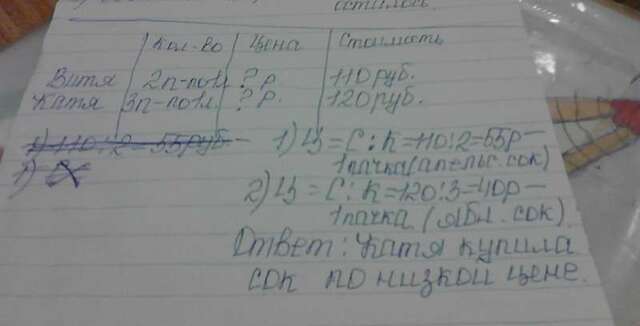 осталось.
Кол-во Цена Стоимость
Витя 2п-по1л ? р. 110руб.
Катя 3п-по1л. ? р. 120руб.
1) 110:2=55руб-
1)
1) Ц=С:К=110:2=55р-
1пачка(апельс.сок)
2) Ц=С:К=120:3=40р-
1пачка (ябл.сок).
Ответ: Катя купила
сок по низкой цене.